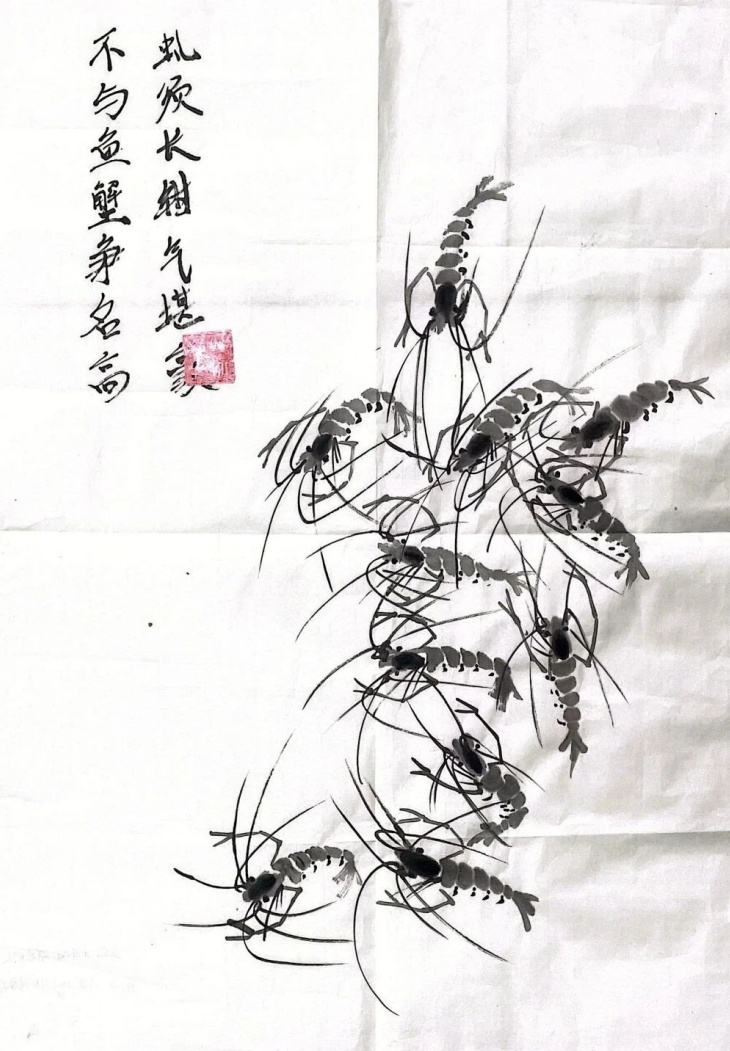 虬须长钳气堪豪
不与鱼蟹争名高